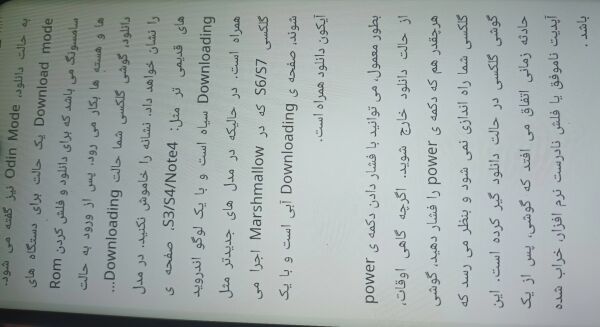 به حالت دانلود، Odin Mode نیز گفته می شود.
Download mode یک حالت برای دستگاه های
سامسونگ می باشد که برای دانلود و فلش کردن Rom
ها و هسته ها بکار می رود. پس از ورود به حالت
دانلود، گوشی گلکسی شما حالت Downloading...
را نشان خواهد داد. نشانه را خاموش نکنید. در مدل
های قدیمی تر مثل: S3/S4/Note4، صفحه ی
Downloading سیاه است و با یک لوگو اندروید
همراه است. در حالیکه در مدل های جدیدتر مثل
گلکسی S6/S7 که در Marshmallow اجرا می
شوند، صفحه ی Downloading آبی است و با یک
آیکون دانلود همراه است.
بطور معمول، می توانید با فشار دادن دکمه ی power
از حالت دانلود خارج شوید. اگرچه گاهی اوقات،
هرچقدر هم که دکمه ی power را فشار دهید، گوشی
گلکسی شما راه اندازی نمی شود و بنظر می رسد که
گوشی گلکسی در حالت دانلود گیر کرده است. این
حادثه زمانی اتفاق می افتد که گوشی، پس از یک
آپدیت ناموفق یا فلش نادرست نرم افزار، خراب شده
باشد .